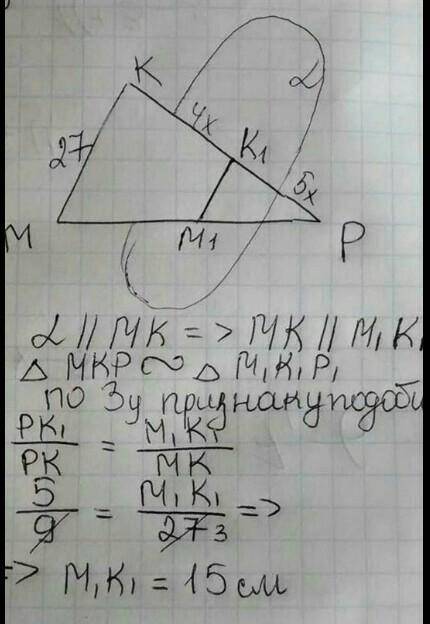 K
α
4x
K₁
27
5x
M
M₁
P
α // MK => MK // M₁K₁
△ MKP ∾ △ M₁K₁P₁
по 3у признаку подоби
PK₁/PK = M₁K₁/MK
5/9 = M₁K₁/27 3 =>
=> M₁K₁ = 15 см